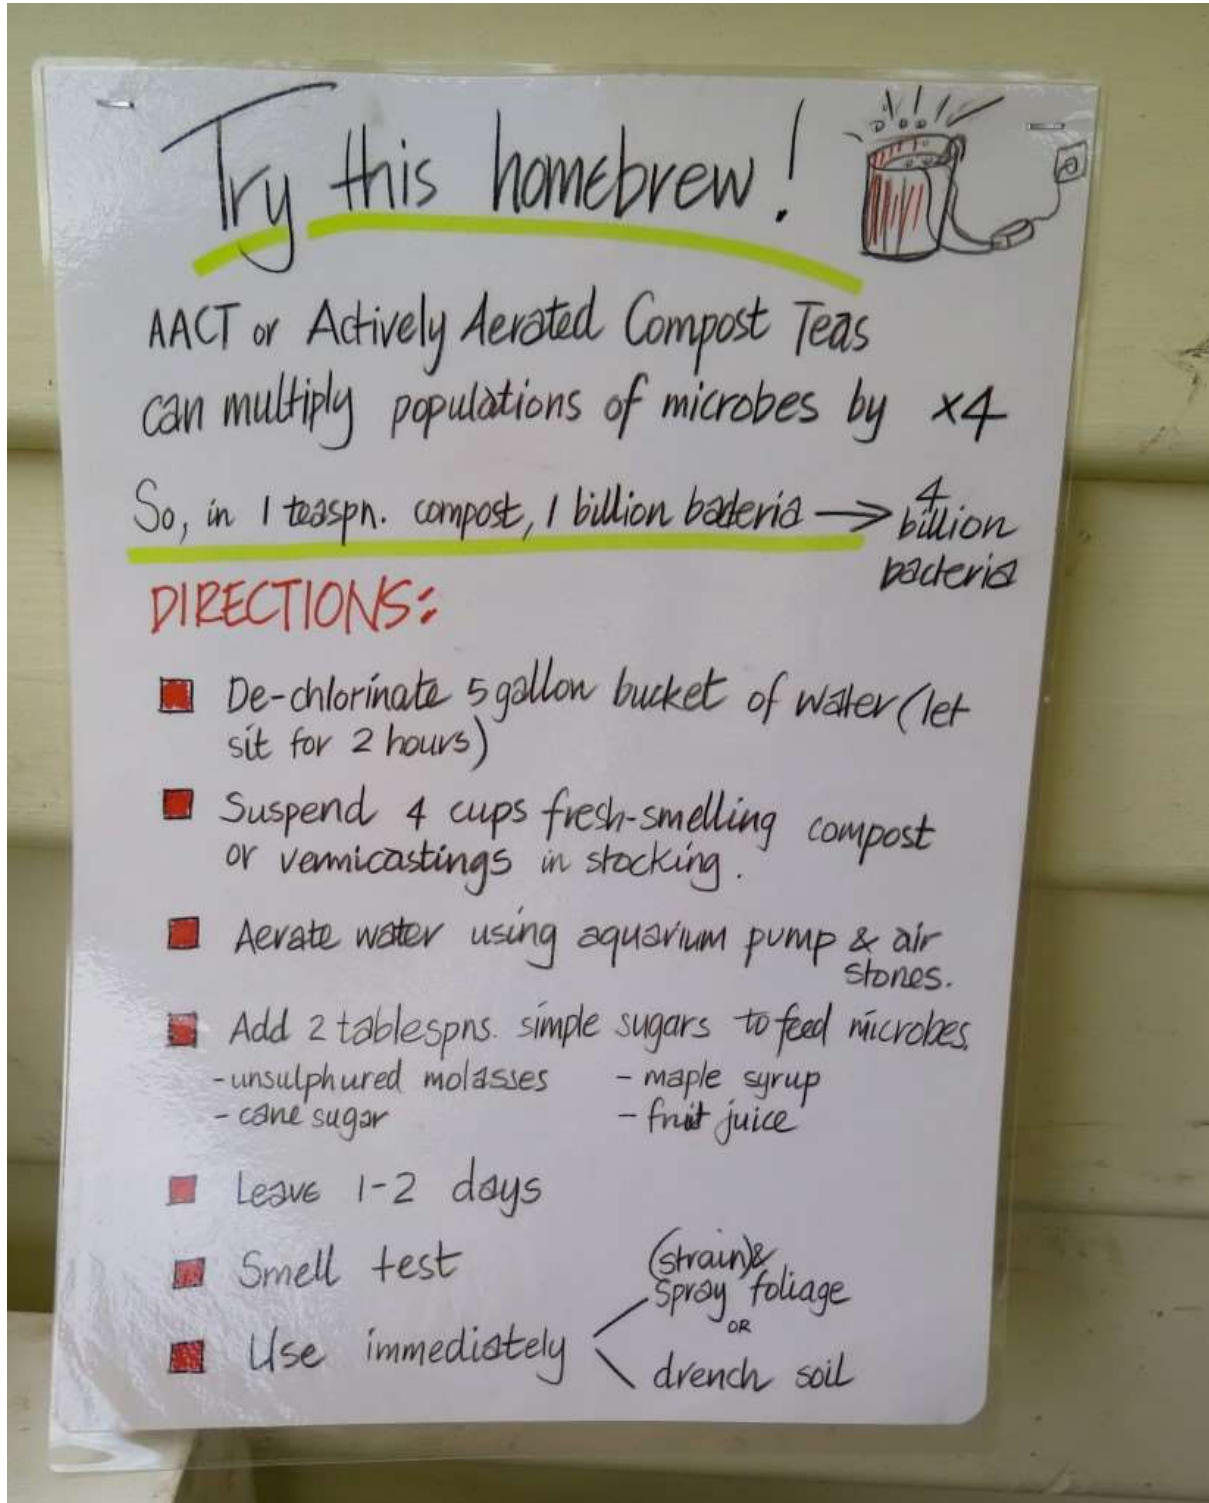 Try this homebrew!
AACT or Actively Aerated Compost Teas
can multiply populations of microbes by x4
So, in 1 teaspn. compost, 1 billion bacteria → 4
billion
bacteria
DIRECTIONS:
De-chlorinate 5 gallon bucket of water (let
sit for 2 hours)
Suspend 4 cups fresh-smelling compost
or vermicastings in stocking.
Aerate water using aquarium pump & air
stones.
Add 2 tablespns. simple sugars to feed microbes.
-unsulphured molasses - maple syrup
- cane sugar - fruit juice
Leave 1-2 days
Smell test
(strain)&
spray foliage
OR
Use immediately
drench soil